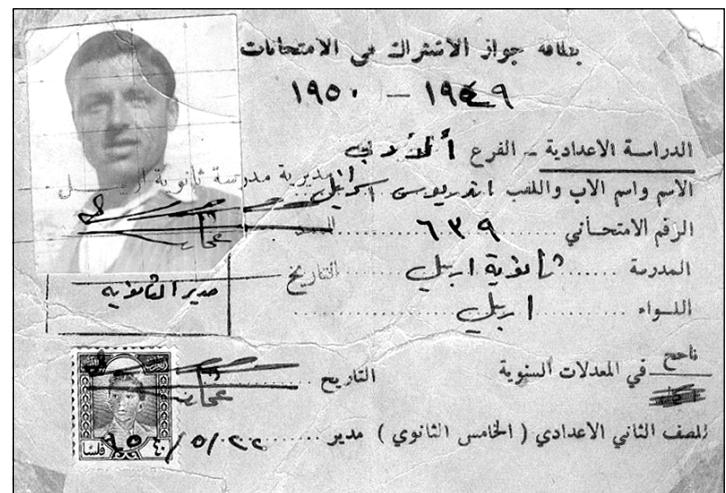 بطاقه جواز الاشتراك في الامتحانات
١٩٤٩ — ١٩٥٠
الدراسة الاعدادية - الفرع الأدبي
مديرية مدرسة ثانوية اربيل
الاسم واسم الاب واللقب اندريوس
العدد
الرقم الامتحاني ٦٣٩
المدرسة ثانوية اربيل
التاريخ
مدير الثانويه
اللواء اربيل
ناجح في المعدلات السنوية
التاريخ
للصف الثاني الاعدادي ( الخامس الثانوي ) مدير
٢٢/٥/٩٥٠
فلسا